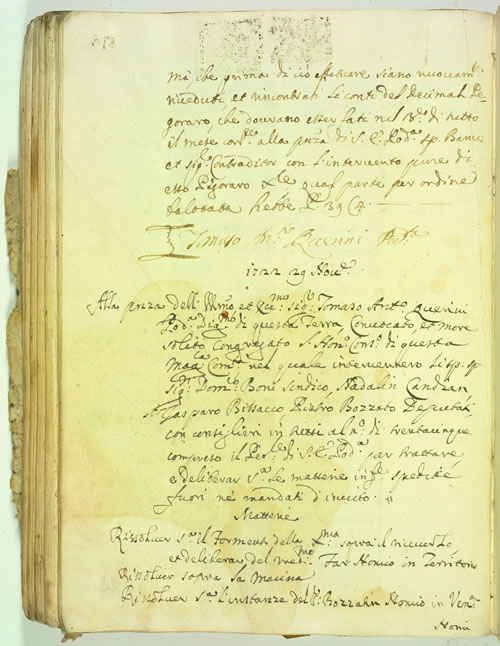 mà che prima di ciò effettuare siano nuovam.te
riveduti, et rincontrati li conti del Decimal Pe-
goraro, che dovrano esser fatti nel di detto
il mese corr.te alla pnza di S. E. Pod.a sp. Banca
et sig. Contraditor con l'intervento pure di
esso Pegoraro qual parte per ordine
balotata hebbe P. 39 C. 2.
Tomaso Querini Pod.ta
1722 29 Nov.e
Alla pnza dell' Illmo et Ecc.mo Sig. Tomaso Ant.o Querini
Pod.a Dig.mo di questa Terra, Convocato, et more
solito Congregato l'Hon. Cons. di questa
Mag.ca Com.tà nel quale intervennero li sp. sp.
Sig. Dom.co Boni Sindico, Nadalin Candian
Gasparo Bissacco Pietro Bozzato Deputati
con consiglieri in tutti al n.o di trentacinque
compreso il Per. di S. E. Pod.a per trattare
e deliberar s.a le matterie inf.te spedite
fuori ne mandati d'invito.
Matterie
Rissolver s.a il della sopra il
et deliberar del med.mo Far Honvio in Territorio
Rissolver sopra la Macina
Rissolver s.a l'instanze del Bozzatin Honvio in Ven.a